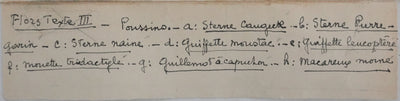 Hors Texte III — Poussins — a: Sterne Caugek — b: Sterne Pierre-
garin — c: Sterne naine — d: Guiffette moustac — e: Guiffette leucoptère
f: mouette tridactyle — g: Guillemot à capuchon — h: Macareux moine